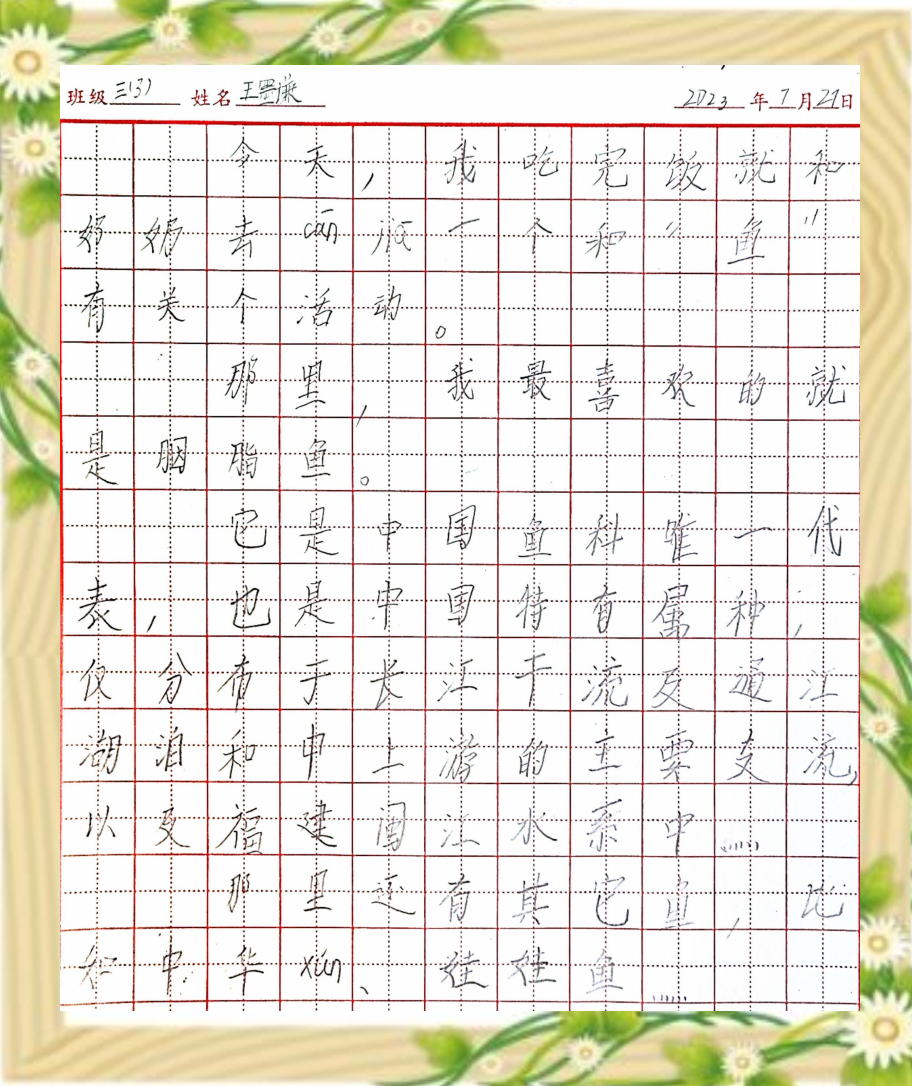 班级 三(3) 姓名 王墨谦 2023年7月21日
今天，我吃完饭就和
奶奶去cān jiā一个和“鱼”
有关个活动。
那里，我最喜欢的就
是胭脂鱼。
它是中国鱼科唯一代
表，也是中国特有属种，
仅分布于长江干流及通江
湖泊和中上游的主要支流，
以及福建闽江水系中……
那里还有其它鱼，比
和中华xún、娃娃鱼……